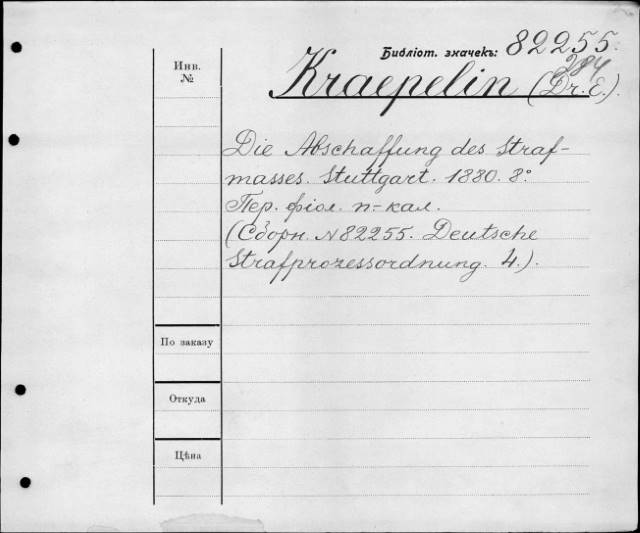 Библіот. значекъ: 82255.
284
Инв.
№
Kraepelin (Dr. E.).
Die Abschaffung des Straf-
masses. Stuttgart. 1880. 8°
Пер. фіол. п.-кал.
(Сборн. №82255. Deutsche
Strafprozessordnung. 4.).
По заказу
Откуда
Цѣна